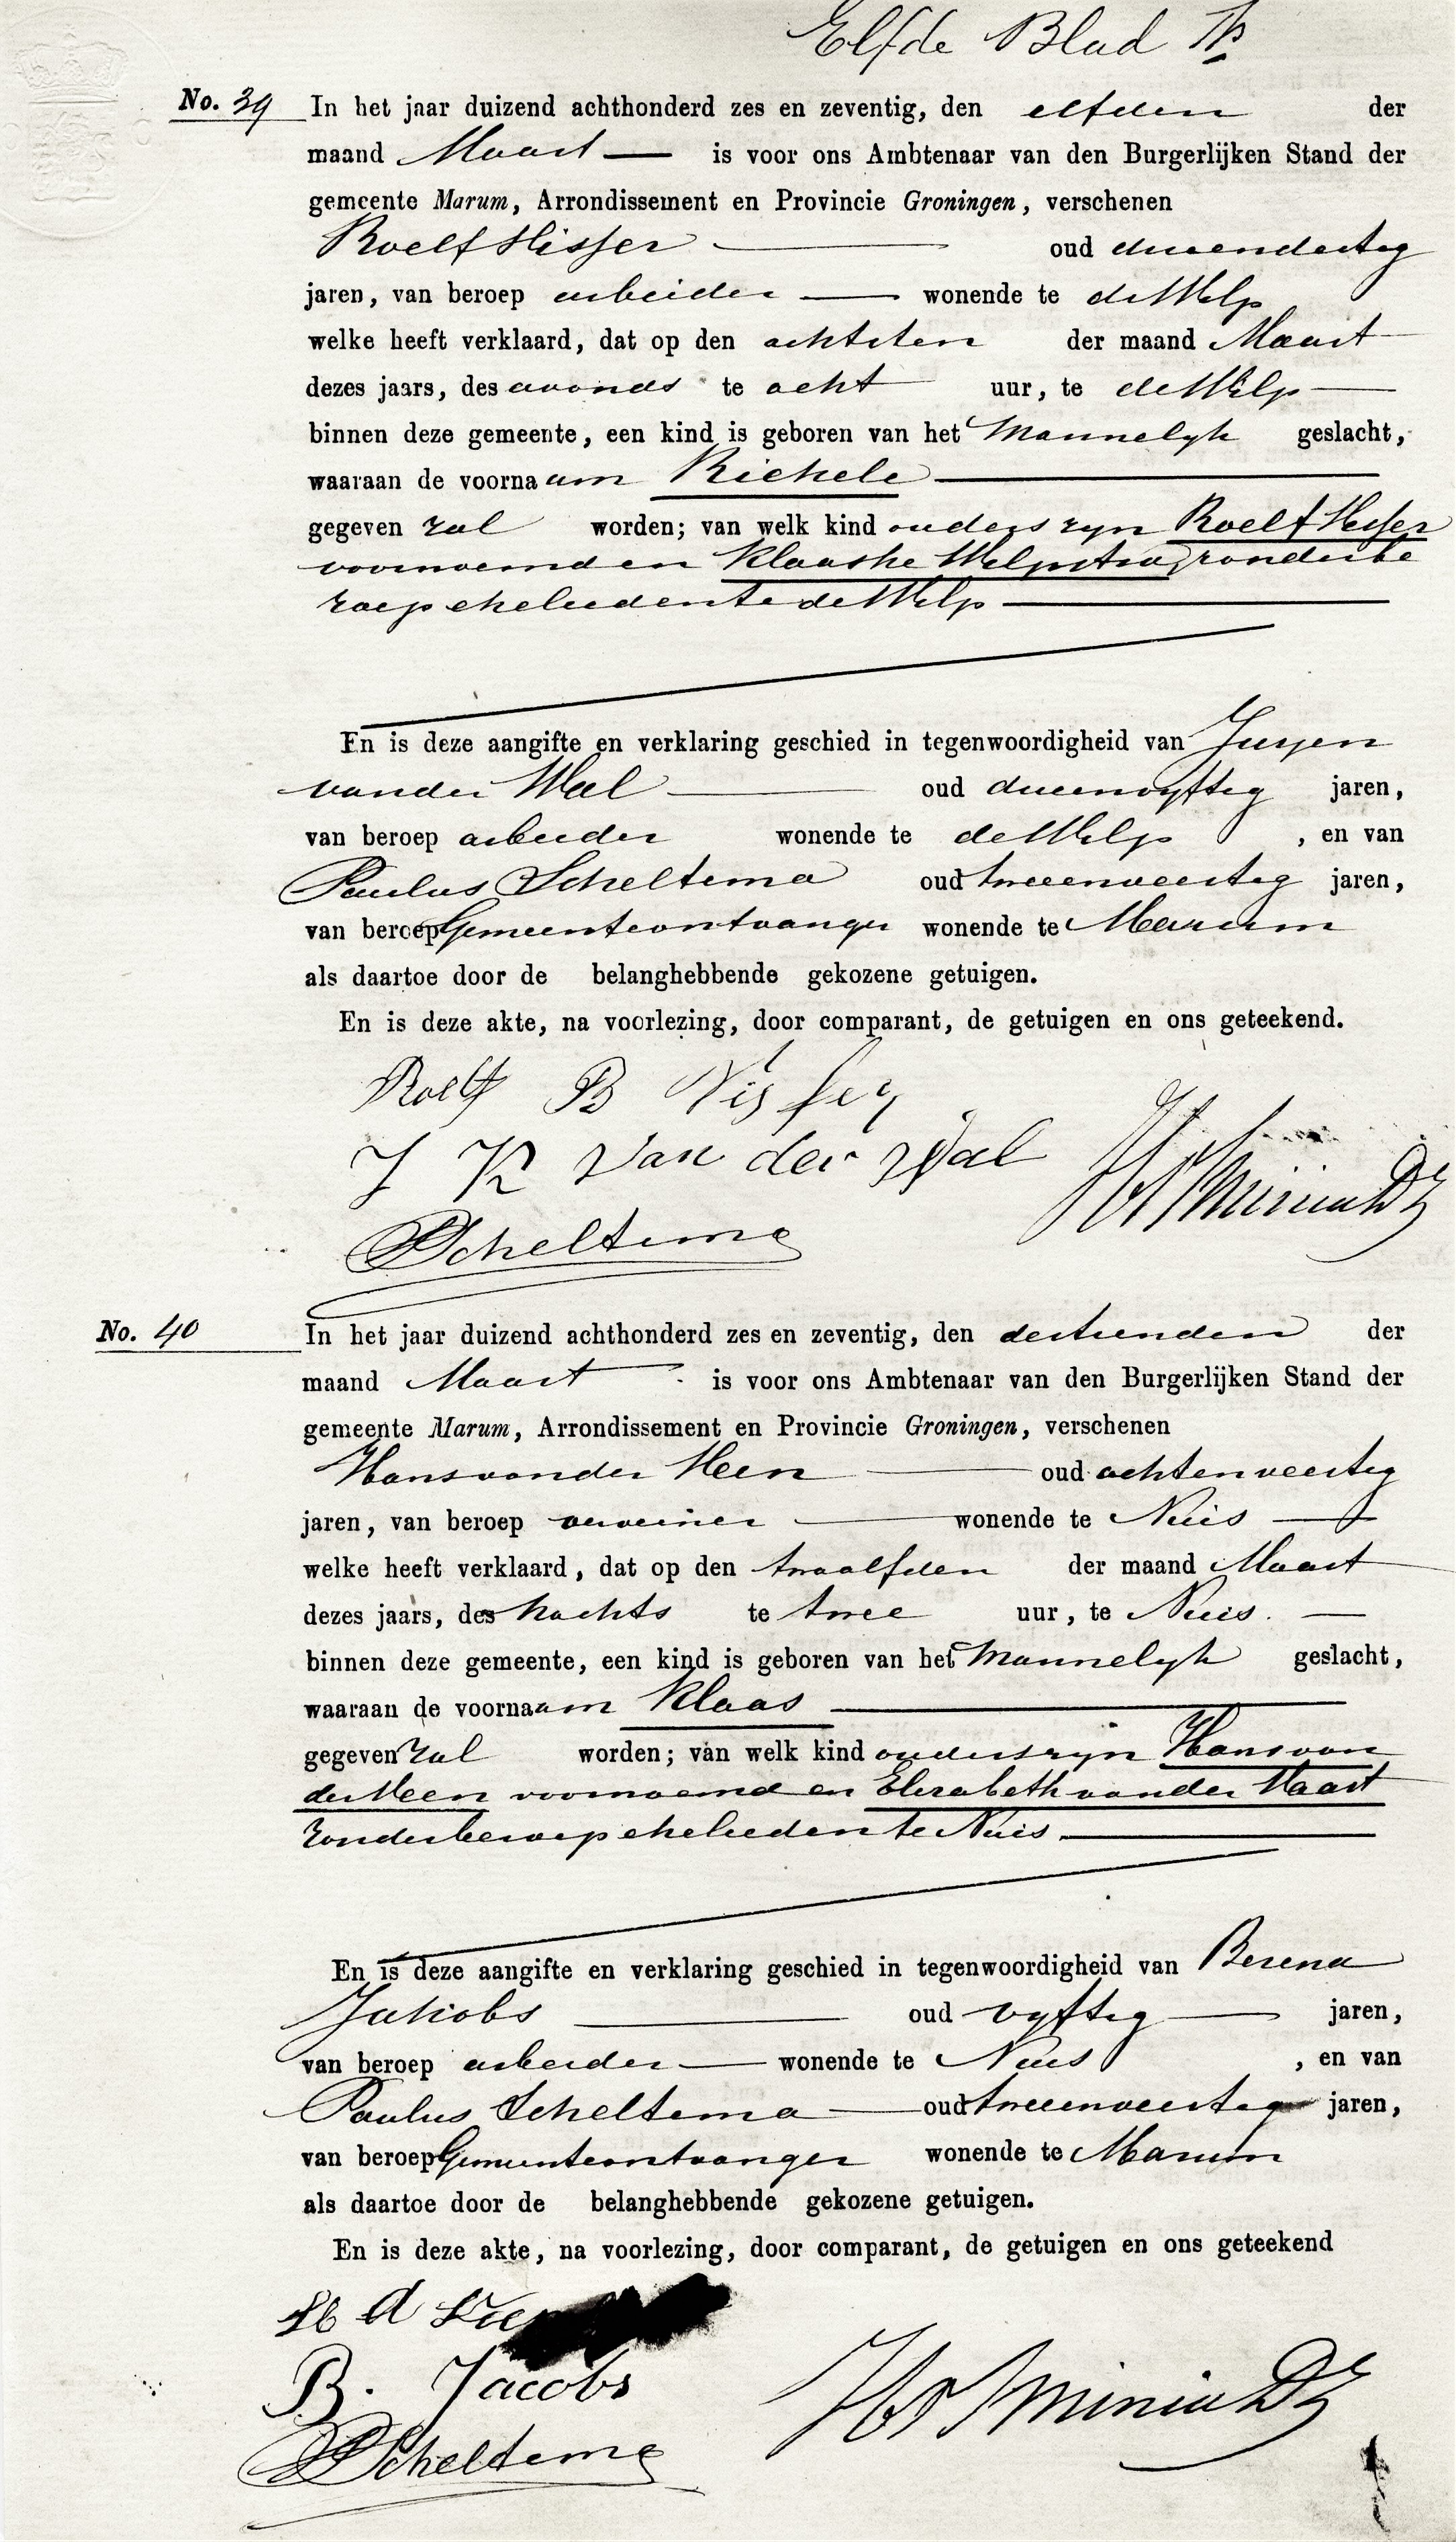 Elfde Blad
No. 39 In het jaar duizend achthonderd zes en zeventig, den elfden der
maand Maart is voor ons Ambtenaar van den Burgerlijken Stand der
gemeente Marum, Arrondissement en Provincie Groningen, verschenen
Roelf Visser oud drieendertig
jaren, van beroep arbeider wonende te de Wilp
welke heeft verklaard, dat op den achtsten der maand Maart
dezes jaars, des avonds te acht uur, te de Wilp
binnen deze gemeente, een kind is geboren van het Mannelyk geslacht,
waaraan de voornaam Riekele
gegeven zal worden; van welk kind ouders zyn Roelf Visser
voornoemd en Klaaske Wilpstra, zonder be
roep echelieden te de Wilp
En is deze aangifte en verklaring geschied in tegenwoordigheid van Jurjen
van der Wal oud drieenvyftig jaren,
van beroep arbeider wonende te de Wilp , en van
Paulus Scheltema oud tweeenveertig jaren,
van beroep Gemeenteontvanger wonende te Marum
als daartoe door de belanghebbende gekozene getuigen.
En is deze akte, na voorlezing, door comparant, de getuigen en ons geteekend.
Roelf B Visser
J K van der Wal
PScheltema
No. 40 In het jaar duizend achthonderd zes en zeventig, den dertienden der
maand Maart is voor ons Ambtenaar van den Burgerlijken Stand der
gemeente Marum, Arrondissement en Provincie Groningen, verschenen
Hans van der Veen oud achtenveertig
jaren, van beroep verveener wonende te Nuis
welke heeft verklaard, dat op den twaalfden der maand Maart
dezes jaars, des nachts te twee uur, te Nuis.
binnen deze gemeente, een kind is geboren van het Mannelyk geslacht,
waaraan de voornaam Klaas
gegeven zal worden; van welk kind ouders zyn Hans van
der Veen voornoemd en Elizabeth van der Vaart
zonder beroep echelieden te Nuis
En is deze aangifte en verklaring geschied in tegenwoordigheid van Berend
Jakobs oud vyftig jaren,
van beroep arbeider wonende te Nuis , en van
Paulus Scheltema oud tweeenveertig jaren,
van beroep Gemeenteontvanger wonende te Marum
als daartoe door de belanghebbende gekozene getuigen.
En is deze akte, na voorlezing, door comparant, de getuigen en ons geteekend
B. Jacobs
PScheltema